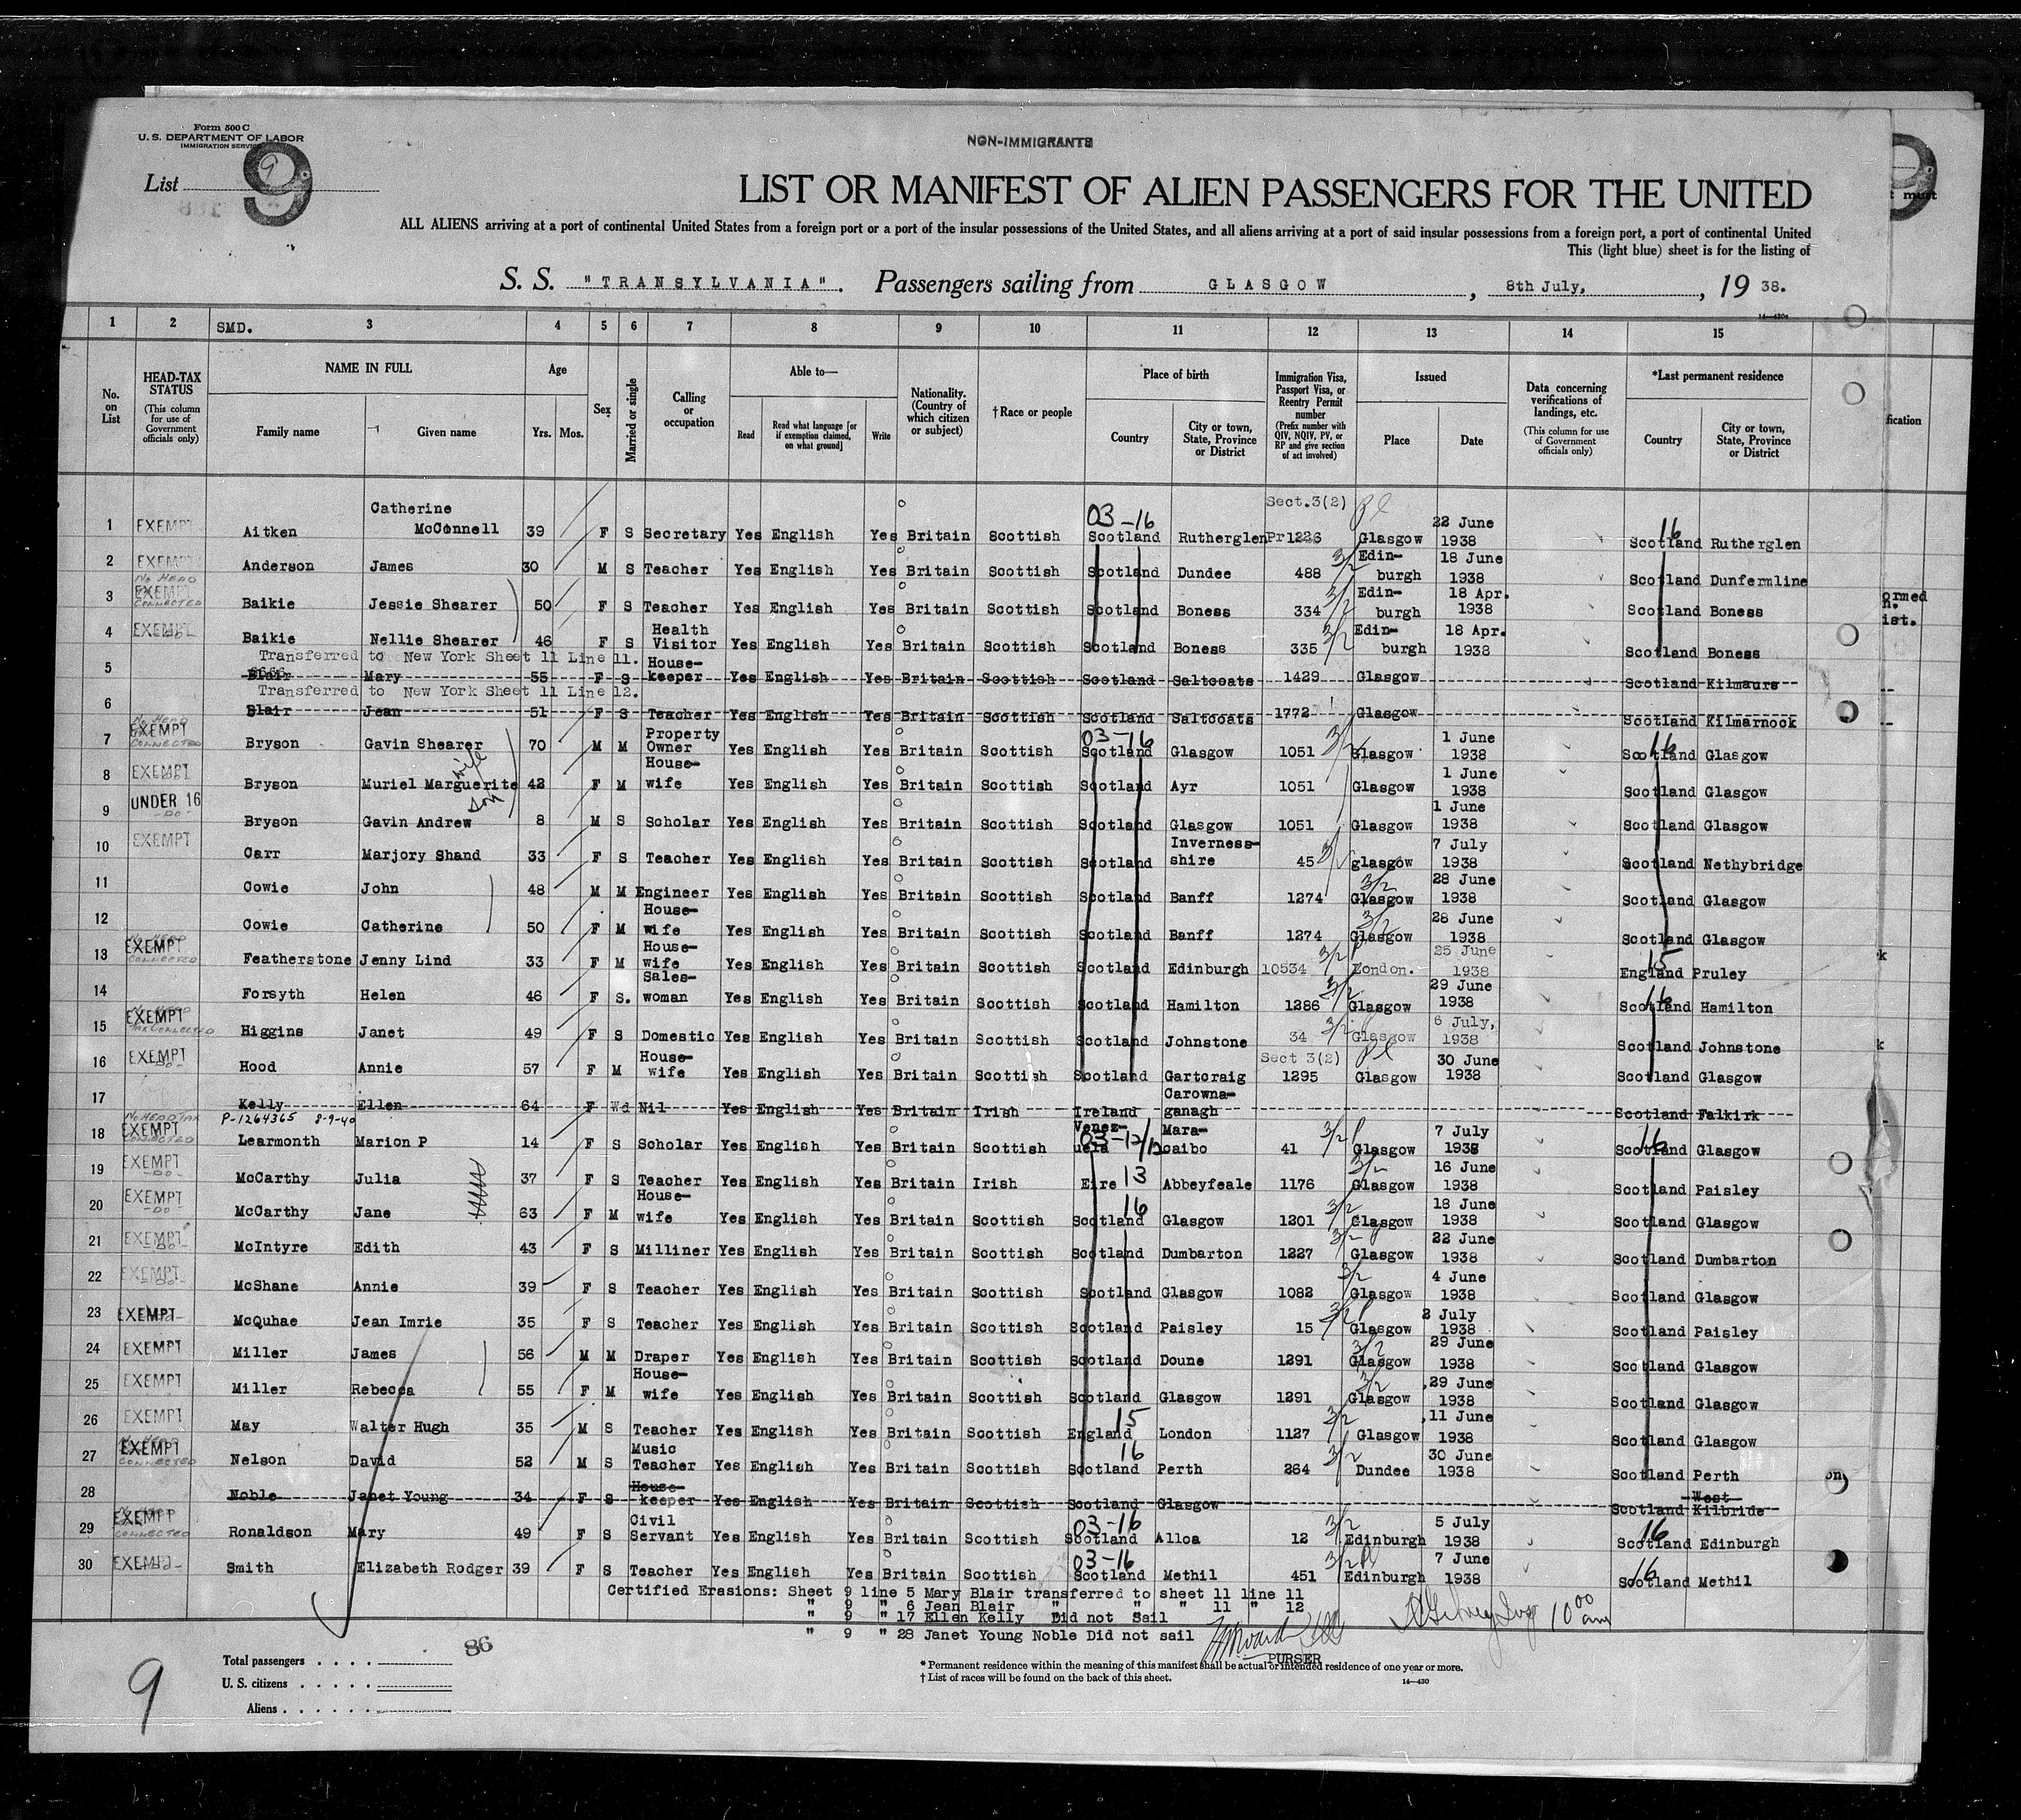 Form 500 C
U. S. DEPARTMENT OF LABOR
IMMIGRATION SERVICE
NON-IMMIGRANTS
List 9
LIST OR MANIFEST OF ALIEN PASSENGERS FOR THE UNITED
ALL ALIENS arriving at a port of continental United States from a foreign port or a port of the insular possessions of the United States, and all aliens arriving at a port of said insular possessions from a foreign port, a port of continental United
This (light blue) sheet is for the listing of
S. S. "TRANSYLVANIA". Passengers sailing from GLASGOW, 8th July, 19 38.
1 2 3 4 5 6 7 8 9 10 11 12 13 14 15
SMD.
No. on List
HEAD-TAX STATUS (This column for use of Government officials only)
NAME IN FULL Family name Given name
Age Yrs. Mos.
Sex
Married or single
Calling or occupation
Able to— Read Read what language [or if exemption claimed, on what ground] Write
Nationality. (Country of which citizen or subject)
†Race or people
Place of birth Country City or town, State, Province or District
Immigration Visa, Passport Visa, or Reentry Permit number (Prefix number with QIV, NQIV, PV, or RP and give section of act involved)
Issued Place Date
Data concerning verifications of landings, etc. (This column for use of Government officials only)
*Last permanent residence Country City or town, State, Province or District
1 EXEMPT Aitken Catherine McConnell 39 F S Secretary Yes English Yes Britain Scottish 03-16 Scotland Rutherglen Sect.3(2) Glasgow 22 June 1938 16 Scotland Rutherglen
2 EXEMPT Anderson James 30 M S Teacher Yes English Yes Britain Scottish Scotland Dundee 488 3/2 Edin-burgh 18 June 1938 Scotland Dunfermline
3 EXEMPT Baikie Jessie Shearer 50 F S Teacher Yes English Yes Britain Scottish Scotland Boness 334 3/2 Edin-burgh 18 Apr. 1938 Scotland Boness
4 EXEMPT Baikie Nellie Shearer 46 F S Health Visitor Yes English Yes Britain Scottish Scotland Boness 335 3/2 Edin-burgh 18 Apr. 1938 Scotland Boness
Transferred to New York Sheet 11 Line 11.
5 Blair Mary 55 F S House-keeper Yes English Yes Britain Scottish Scotland Saltcoats 1429 Glasgow Scotland Kilmaurs
Transferred to New York Sheet 11 Line 12.
6 Blair Jean 51 F S Teacher Yes English Yes Britain Scottish Scotland Saltcoats 1772 Glasgow Scotland Kilmarnook
7 EXEMPT Bryson Gavin Shearer 70 M M Property Owner Yes English Yes Britain Scottish 03-16 Scotland Glasgow 1051 3/2 Glasgow 1 June 1938 16 Scotland Glasgow
8 EXEMPT Bryson Muriel Marguerite wife 42 F M House-wife Yes English Yes Britain Scottish Scotland Ayr 1051 Glasgow 1 June 1938 Scotland Glasgow
9 UNDER 16 -DO- Bryson Gavin Andrew son 8 M S Scholar Yes English Yes Britain Scottish Scotland Glasgow 1051 Glasgow 1 June 1938 Scotland Glasgow
10 EXEMPT Carr Marjory Shand 33 F S Teacher Yes English Yes Britain Scottish Scotland Inverness-shire 45 glasgow 7 July 1938 Scotland Nethybridge
11 Cowie John 48 M M Engineer Yes English Yes Britain Scottish Scotland Banff 1274 3/2 Glasgow 28 June 1938 Scotland Glasgow
12 Cowie Catherine 50 F M House-wife Yes English Yes Britain Scottish Scotland Banff 1274 3/2 Glasgow 28 June 1938 Scotland Glasgow
13 EXEMPT Featherstone Jenny Lind 33 F M House-wife Yes English Yes Britain Scottish Scotland Edinburgh 10534 3/2 London. 25 June 1938 15 England Pruley
14 Forsyth Helen 46 F S. Sales-woman Yes English Yes Britain Scottish Scotland Hamilton 1286 3/2 Glasgow 29 June 1938 16 Scotland Hamilton
15 EXEMPT Higgins Janet 49 F S Domestic Yes English Yes Britain Scottish Scotland Johnstone 34 3/2 Glasgow 6 July, 1938 Scotland Johnstone
16 EXEMPT -DO- Hood Annie 57 F M House-wife Yes English Yes Britain Scottish Scotland Gartcraig Sect 3(2) 1295 Glasgow 30 June 1938 Scotland Glasgow
17 Kelly Ellen 64 F Wd Nil Yes English Yes Britain Irish Ireland Carowna-ganagh Scotland Falkirk
P-1264365 8-9-40
18 EXEMPT Learmonth Marion P 14 F S Scholar Yes English Yes Britain Scottish Venez-uela Mara-caibo 41 3/2 Glasgow 7 July 1938 16 Scotland Glasgow
19 EXEMPT -DO- McCarthy Julia 37 F S Teacher Yes English Yes Britain Irish Eire 13 Abbeyfeale 1176 3/2 Glasgow 16 June 1938 Scotland Paisley
20 EXEMPT -DO- McCarthy Jane 63 F M House-wife Yes English Yes Britain Scottish 16 Scotland Glasgow 1201 3/2 Glasgow 18 June 1938 Scotland Glasgow
21 EXEMPT -DO- McIntyre Edith 43 F S Milliner Yes English Yes Britain Scottish Scotland Dumbarton 1227 3/2 Glasgow 22 June 1938 Scotland Dumbarton
22 EXEMPT -DO- McShane Annie 39 F S Teacher Yes English Yes Britain Scottish Scotland Glasgow 1082 3/2 Glasgow 4 June 1938 Scotland Glasgow
23 EXEMPT McQuhae Jean Imrie 35 F S Teacher Yes English Yes Britain Scottish Scotland Paisley 15 3/2 Glasgow 2 July 1938 Scotland Paisley
24 EXEMPT Miller James 56 M M Draper Yes English Yes Britain Scottish Scotland Doune 1291 3/2 Glasgow 29 June 1938 Scotland Glasgow
25 EXEMPT Miller Rebecca 55 F M House-wife Yes English Yes Britain Scottish Scotland Glasgow 1291 3/2 Glasgow 29 June 1938 Scotland Glasgow
26 EXEMPT May Walter Hugh 35 M S Teacher Yes English Yes Britain Scottish 15 England London 1127 3/2 Glasgow 11 June 1938 Scotland Glasgow
27 EXEMPT Nelson David 52 M S Music Teacher Yes English Yes Britain Scottish 16 Scotland Perth 264 3/2 Dundee 30 June 1938 Scotland Perth
28 Noble Janet Young 34 F S House-keeper Yes English Yes Britain Scottish Scotland Glasgow Scotland West Kilbride
29 EXEMPT Ronaldson Mary 49 F S Civil Servant Yes English Yes Britain Scottish 03-16 Scotland Alloa 12 3/2 Edinburgh 5 July 1938 16 Scotland Edinburgh
30 EXEMPT Smith Elizabeth Rodger 39 F S Teacher Yes English Yes Britain Scottish 03-16 Scotland Methil 451 3/2 Edinburgh 7 June 1938 16 Scotland Methil
Certified Erasions: Sheet 9 line 5 Mary Blair transferred to sheet 11 line 11
" 9 " 6 Jean Blair " " " 11 " 12
" 9 " 17 Ellen Kelly Did not Sail
" 9 " 28 Janet Young Noble Did not sail
PURSER
10 00 am
86
Total passengers
U. S. citizens
Aliens
9
* Permanent residence within the meaning of this manifest shall be actual or intended residence of one year or more.
† List of races will be found on the back of this sheet.
14—430